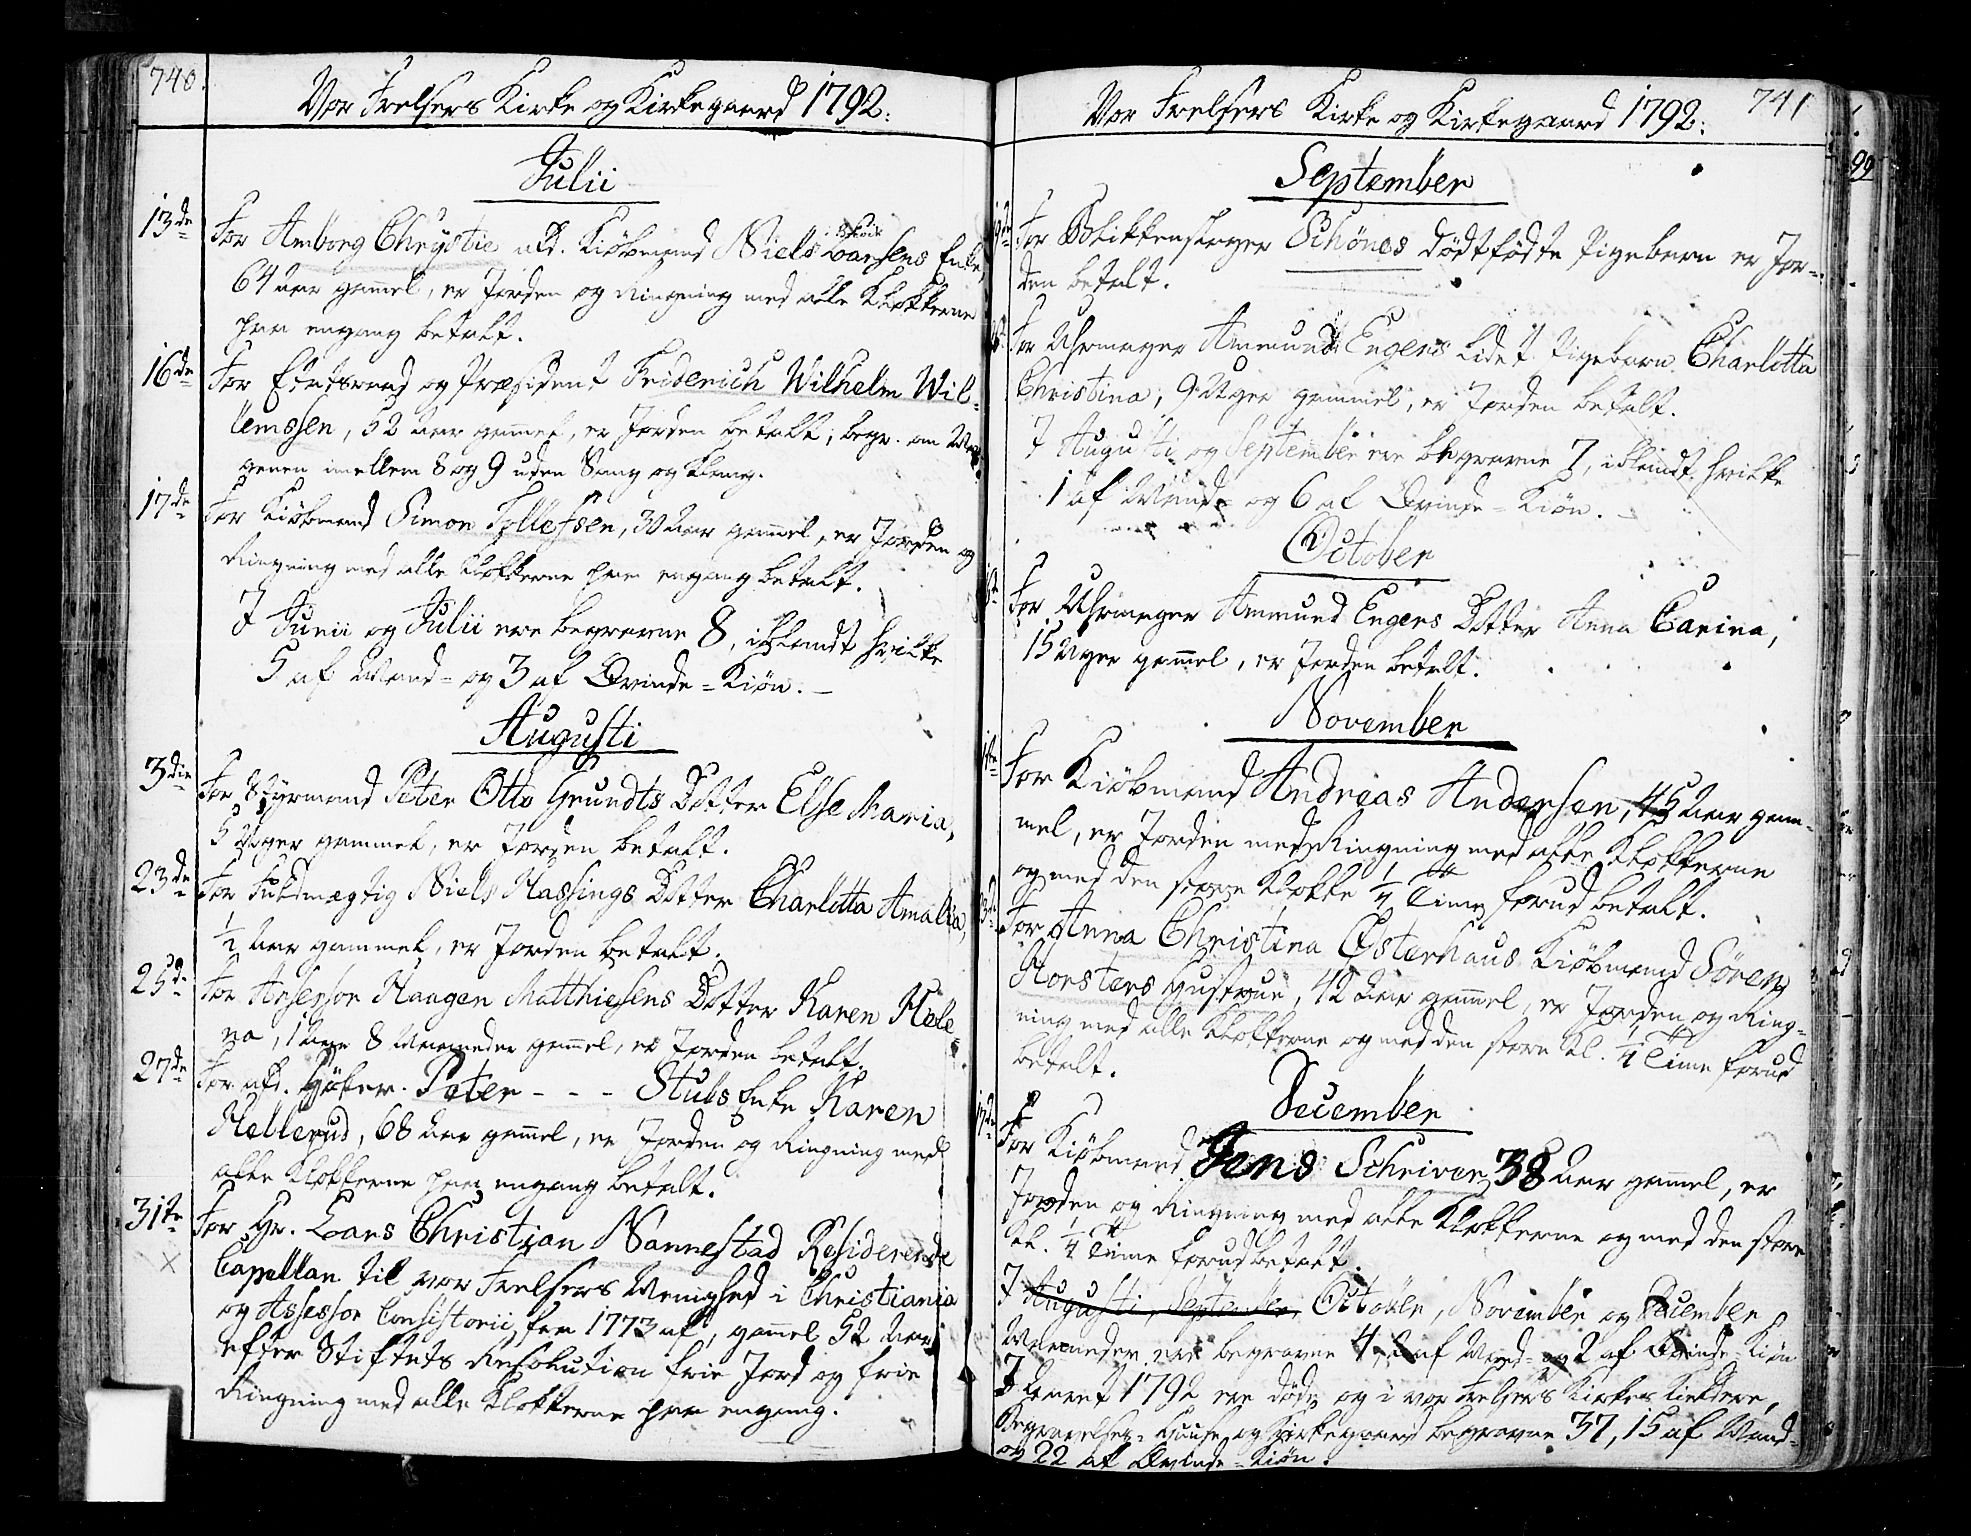 740.
Vor Frelsers Kirke og Kirkegaard 1792.
Julii
13de For Amborg Chrystie afd. Kiøbmand Niels Larsens Enke,
64 Aar gam̄el, er Jorden og Ringning med alle Klokkerne
paa engang betalt.
16de For Etatsraad og Præsident Friderich Wilhelm Wil-
lemssen, 52 Aar gam̄el, er Jorden betalt, begr. om Mor-
genen imellem 8 og 9 uden Sang og Klang.
17de For Kiøbmand Simon Tyllefsen, 30 Aar gam̄el, er Jorden og
Ringning med alle Klokkerne paa engang betalt.
I Junii og Julii ere begravne 8, iblandt hvilke
5 af Mand- og 3 af Qvinde-Kiøn.
Augusti
3die For Styrmand Peter Otto Grundts Dotter Else Maria,
5 Uger gammel, er Jorden betalt.
23de For Fuldmægtig Niels Hassings Dotter Charlotta Amalia,
½ Aar gammel, er Jorden betalt.
25de For Assessor Haagen Matthiesens Dotter Karen Hele-
na, 1 Aar 8 Maaneder gam̄el, er Jorden betalt.
27de For afd. Høker Peter - - - Stubs Enke Karen
Hellerud, 68 Aar gam̄el, er Jorden og Ringning med
alle Klokkerne paa engang betalt.
31te For Hr. Lars Christian Nannestad Residerende
× Capellan til vor Frelsers Menighed i Christiania
og Assessor Consistorii fra 1773 af, gam̄el 52 Aar,
efter Stiftets Resolution frie Jord og frie
Ringning med alle Klokkerne paa engang.
741
Vor Frelsers Kirke og Kirkegaard 1792.
September
For Blikkenslager Schönes dødfødte Pigebarn er Jor-
den betalt.
For Uhrmager Ammund Engens lidet Pigebarn Charlotta
Christina, 9 Uger gammel, er Jorden betalt.
I Augusti og September ere begravne 7, iblandt hvilke
1 af Mand- og 6 af Qvinde-Kiøn.
October
For Uhrmager Ammund Engens Dotter Anna Carina,
15 Uger gam̄el, er Jorden betalt.
November
For Kiøbmand Andreas Andersen, 45 Aar gam-
mel, er Jorden med Ringning med alle Klokkerne
og med den store Klokke ¼ Time forud betalt.
For Anna Christina Østerhaus Kiøbmand Søren
Horsters Hustrue, 42 Aar gam̄el, er Jorden og Ring-
ning med alle Klokkerne og med den store Kl. ¼ Time forud
betalt.
December
For Kiøbmand Jens Schriver, 38 Aar gam̄el, er
Jorden og Ringning med alle Klokkerne og med den store
Kl. ¼ Time forud betalt.
I Augusti, September, October, November og December
Maaneder ere begravne 4, 2 af Mand- og 2 af Qvinde-Kiøn
I Aaret 1792 ere døde og i vor Frelsers Kirkes Kieldere,
Begravelses-Huuse og Kirkegaard begravne 37, 15 af Mand-
og 22 af Qvinde-Kiøn.
99